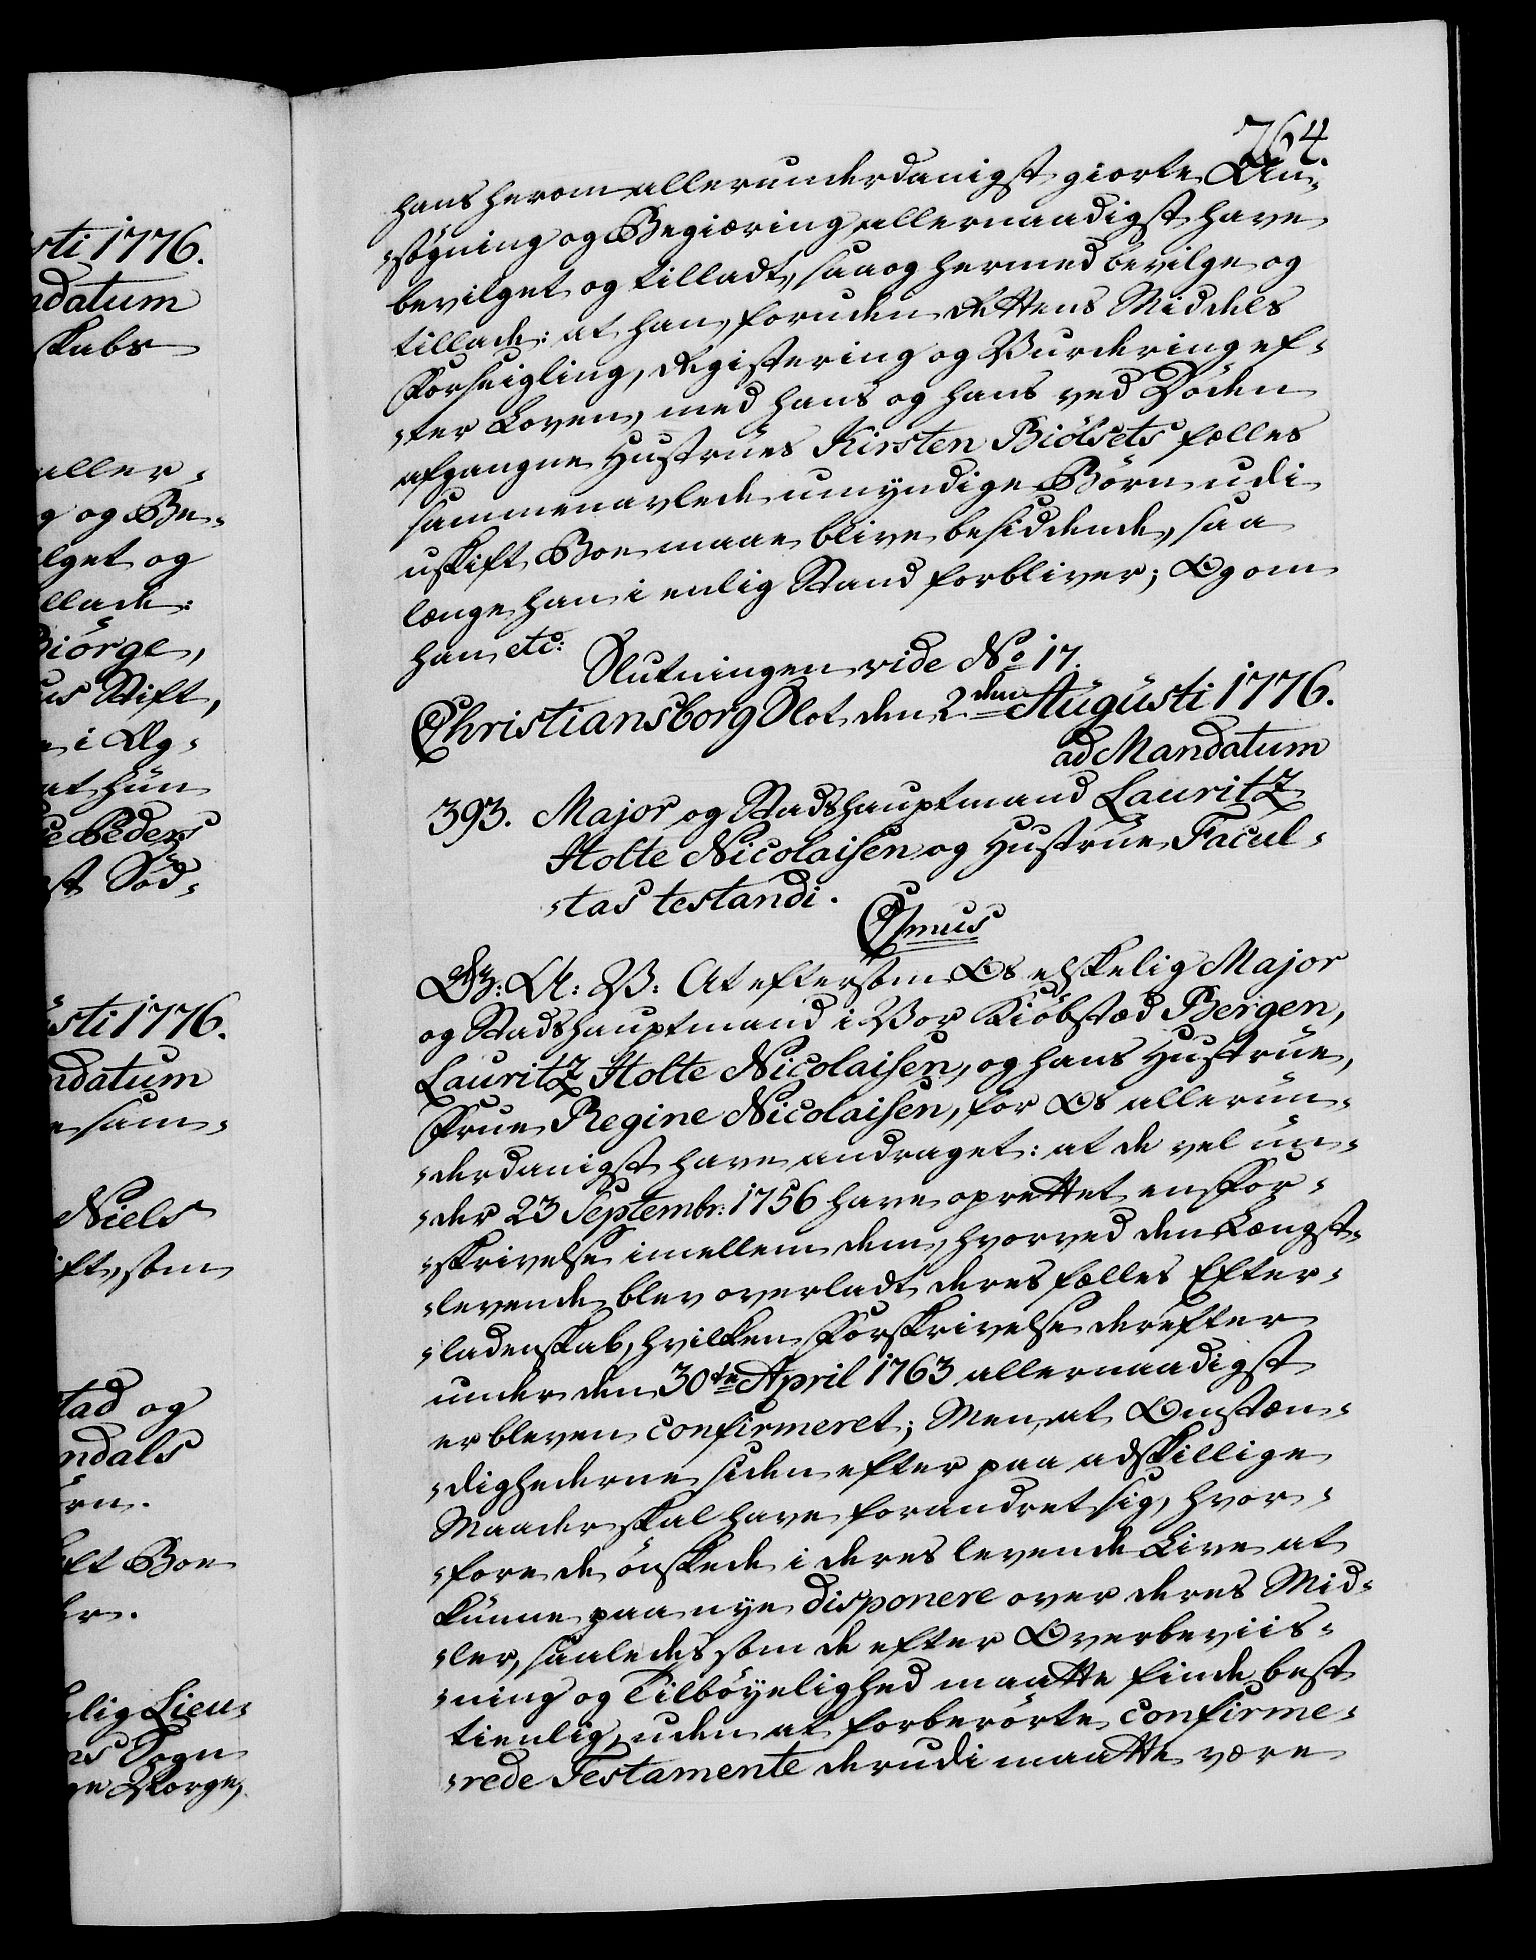 764.
hans herom allerunderdanigst giorte An-
-søgning og Begiæring allernaadigst have
bevilget og tilladt, saa og hermed bevilge og
tillade: at han, foruden Rettens Middels
Forseigling, Registering og Vurdering ef-
-ter Loven, med hans og hans ved Døden
afgangne Hustrues Kirsten Biölsets fælles
sammenavlede umyndige Børn udi
uskift Boe maae blive besiddende, saa
længe han i enlig Stand forbliver; Og om
han etc: Slutningen vide No 17.
Christiansborg Slot den 2den Augusti 1776.
ad Mandatum
393. Major og Stadshauptmand Lauritz
Holte Nicolaisen og Hustrue Facul-
-tas testandi.
C7mus
G: A: V: At eftersom Os elskelig Major
og Stadshauptmand i Vor Kiöbstæd Bergen,
Lauritz Holte Nicolaisen, og hans Hustrue,
Frue Regine Nicolaisen, for Os allerun-
-derdanigst have andraget: at de vel un-
-der 23 Septembr: 1756 have oprettet en For-
-skrivelse imellem dem, hvorved den Længst-
-levende blev overladt deres fælles Efter-
-ladenskab, hvilken Forskrivelse derefter
under den 30te April 1763 allernaadigst
er bleven confirmeret; Men, at Omstæn-
-dighederne siden efter paa adskillige
Maader skal have forandret sig, hvor-
-fore de ønskede i deres levende Live at
kunne paa nye disponere over deres Mid-
-ler, saaledes som de efter Overbeviis-
-ning og Tilböyelighed maatte finde best
tienlig, uden at forberørte confirme-
-rede Testamente derudi maatte være